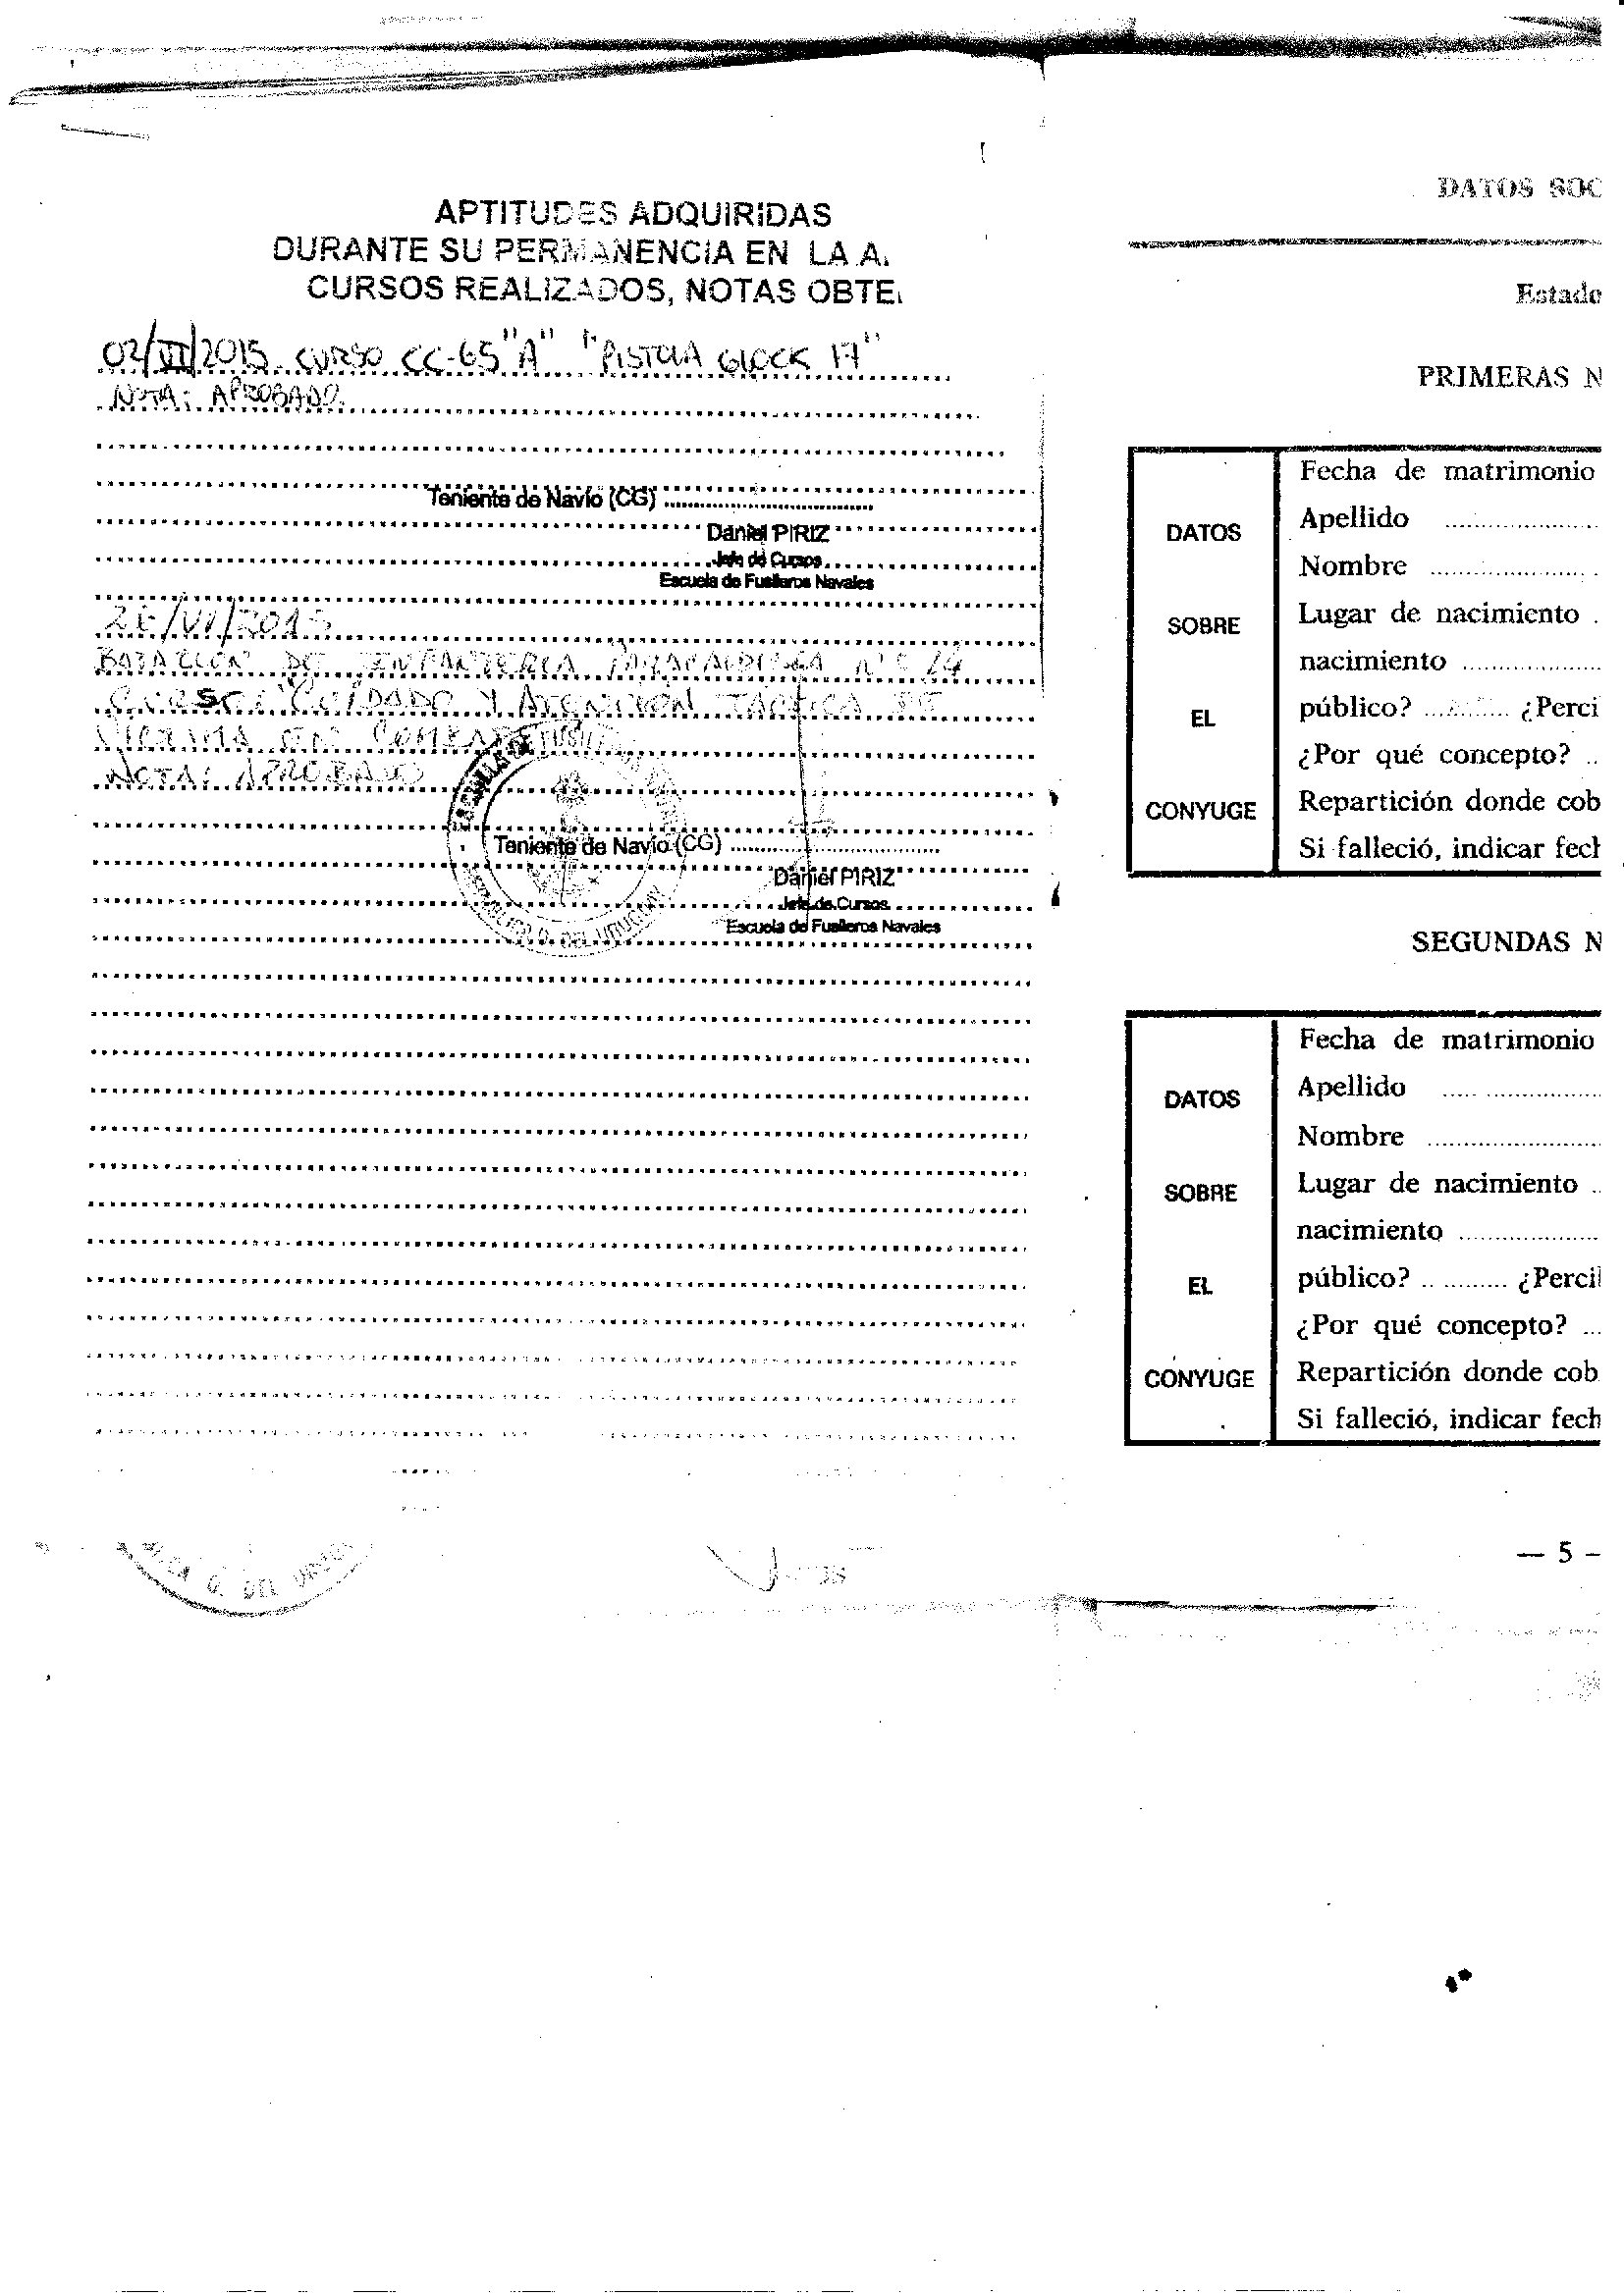 APTITUDES ADQUIRIDAS
DURANTE SU PERMANENCIA EN LA A.
CURSOS REALIZADOS, NOTAS OBTE
02/VII/2015 CURSO CC-65 "A" "PISTOLA GLOCK 17"
NOTA: APROBADO.
Teniente de Navío (CG)
Daniel PIRIZ
Jefe de Cursos
Escuela de Fusileros Navales
/VI/2015
BATALLON DE INFANTERIA PARACAIDISTA Nº 14
CURSO: "CUIDADO Y ATENCION TACTICA DE
VICTIMA EN COMBATE"
NOTA: APROBADO
ESCUELA DE
Teniente de Navío (CG)
Daniel PIRIZ
Jefe de Cursos
Escuela de Fusileros Navales
O. DEL URUGUAY
O. DEL
DATOS SOC
Estado
PRIMERAS N
DATOS
SOBRE
EL
CONYUGE
Fecha de matrimonio
Apellido
Nombre
Lugar de nacimiento
nacimiento
público? ¿Perci
¿Por qué concepto?
Repartición donde cob
Si falleció, indicar fech
SEGUNDAS N
DATOS
SOBRE
EL
CONYUGE
Fecha de matrimonio
Apellido
Nombre
Lugar de nacimiento
nacimiento
público? ¿Percil
¿Por qué concepto?
Repartición donde cob
Si falleció, indicar fech
— 5 –